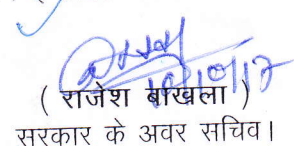 ( राजेश बाखला )
सरकार के अवर सचिव।